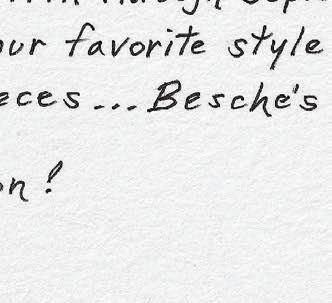 ur favorite style
eces... Besche's
on!